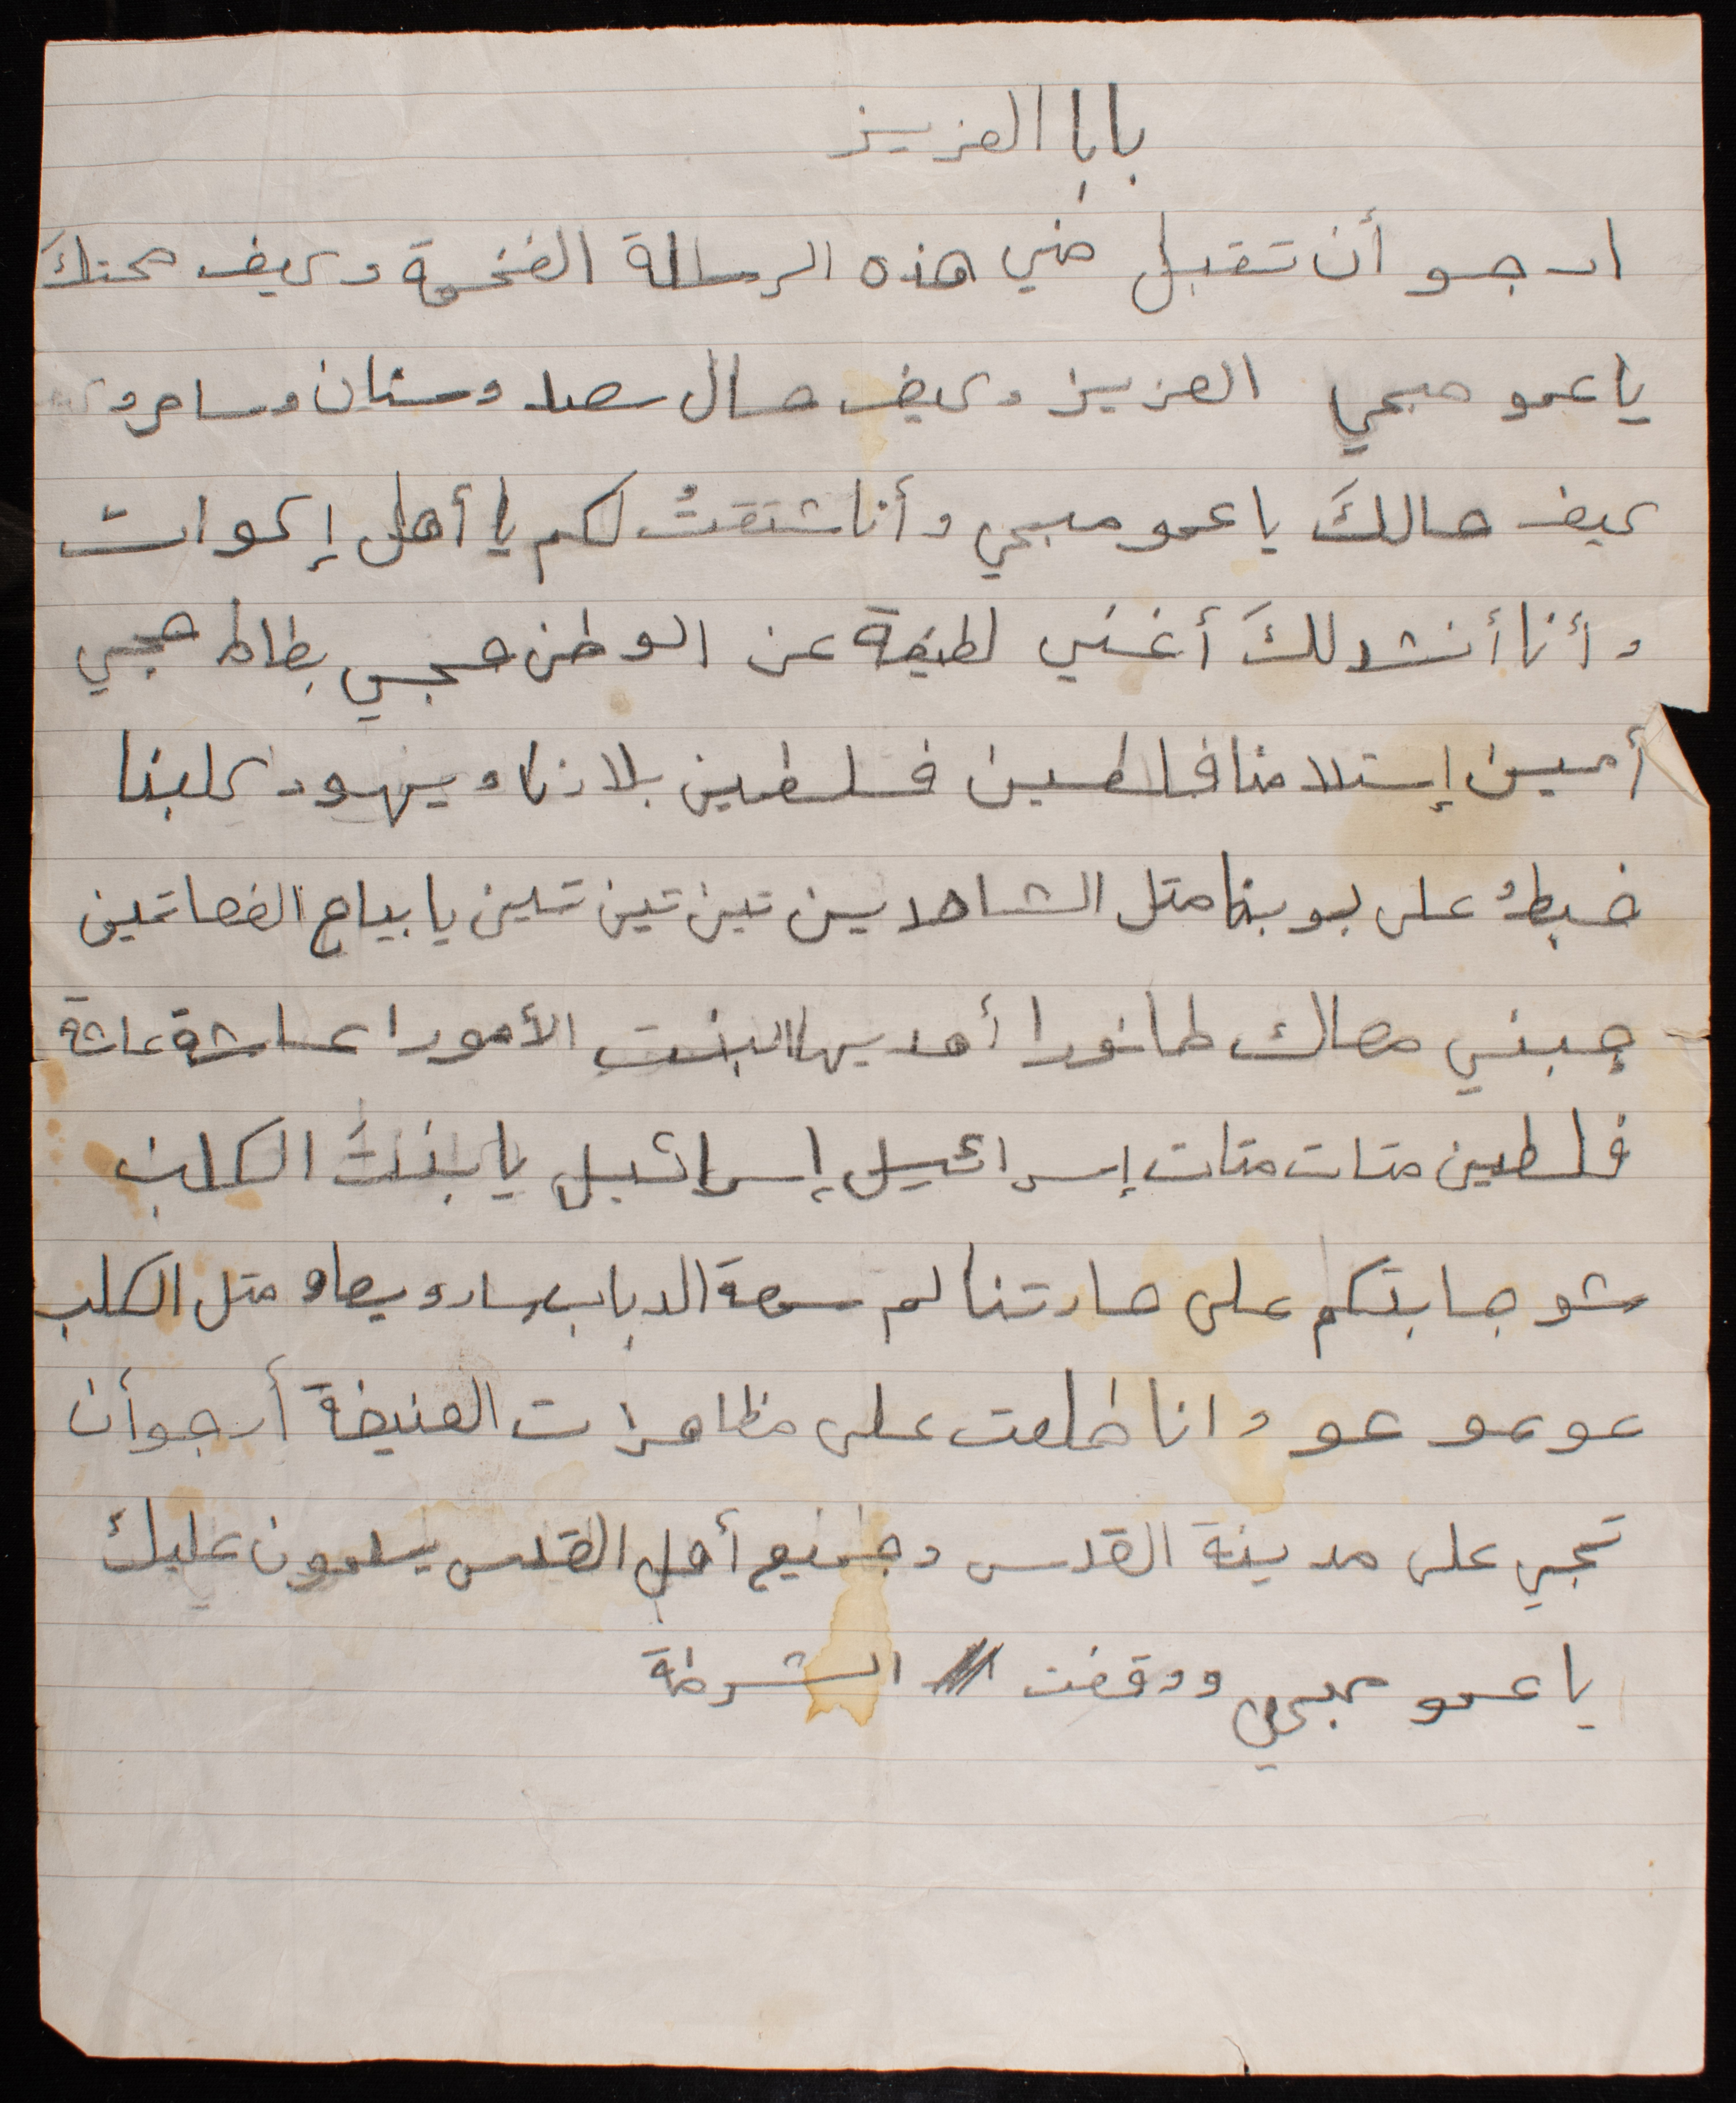 بابا العزيز
ارجو أن تقبل مني هذه الرسالة الفخمة وكيف صحتكَ
يا عمو صبحي العزيز وكيف حال سعد وسنان وسامر و
كيف حالكَ يا عمو صبحي وأنا شتقتُ لكم يا أهل إكوات
وأنا أنشد لكَ أغني لطيفة عن الوطن حجي بطاط حجي
أمين إستلامنا فلسطين فلسطين بلادنا ويهود كلبنا
ضبطُ على بوبنا متل الشاهدين تين تين تين يا بياع الفصاتين
جبني معاك طانورا أهديها البنت الأمورا عاشة عاشة
فلسطين متات متات إسرائيل إسرائيل يا بنتَ الكلب
شو جابتكم على حارتنا لم سمعة الدباب سارو يعاو متل الكلب
عو عو عو وانا طلعت على مظاهرات العنيفة أرجو أن
تجي على مدينة القدس وجميع أهل القدس يسلمون عليك
يا عمو صبحي ووقفت الشرطة